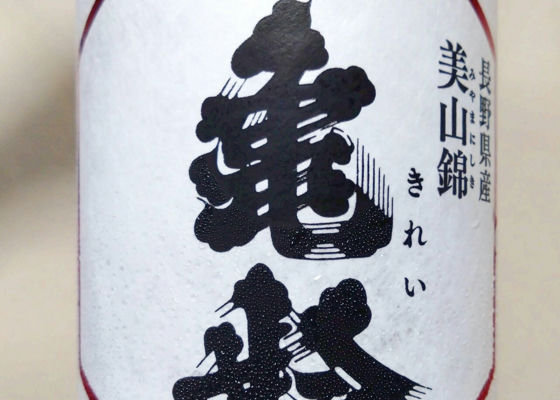 長野県産
みやまにしき
美山錦
きれい
亀齢